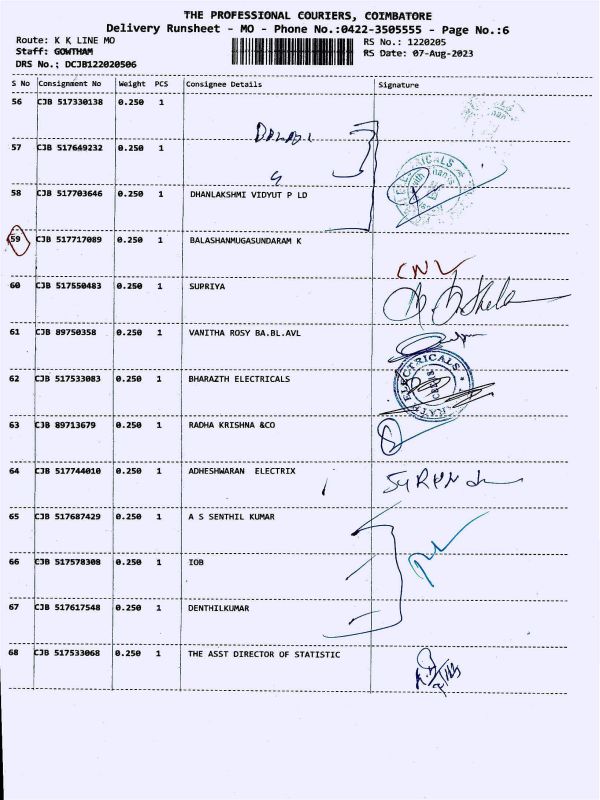 THE PROFESSIONAL COURIERS, COIMBATORE
Delivery Runsheet - MO - Phone No.:0422-3505555 - Page No.:6
Route: K K LINE MO RS No.: 1220205
Staff: GOWTHAM RS Date: 07-Aug-2023
DRS No.; DCJB122020506
S No Consignment No Weight PCS Consignee Details Signature
56 CJB 517330138 0.250 1
57 CJB 517649232 0.250 1
58 CJB 517703646 0.250 1 DHANLAKSHMI VIDYUT P LD
59 CJB 517717089 0.250 1 BALASHANMUGASUNDARAM K
CNL
60 CJB 517550483 0.250 1 SUPRIYA
61 CJB 89750358 0.250 1 VANITHA ROSY BA.BL.AVL
62 CJB 517533083 0.250 1 BHARAZTH ELECTRICALS
ELECTRICALS
63 CJB 89713679 0.250 1 RADHA KRISHNA &CO
64 CJB 517744010 0.250 1 ADHESHWARAN ELECTRIX
65 CJB 517687429 0.250 1 A S SENTHIL KUMAR
66 CJB 517578308 0.250 1 IOB
67 CJB 517617548 0.250 1 DENTHILKUMAR
68 CJB 517533068 0.250 1 THE ASST DIRECTOR OF STATISTIC